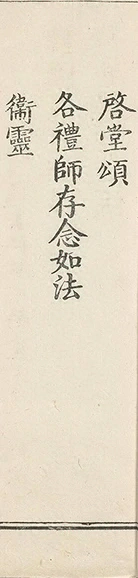 啓堂頌
各禮師存念如法
衞靈